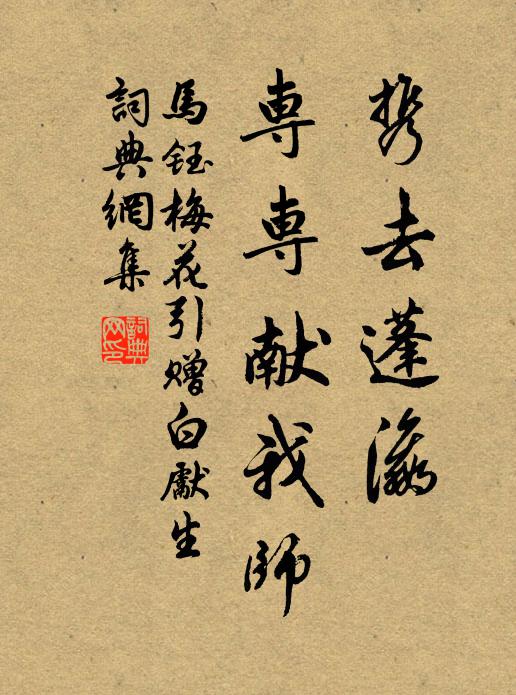 携去蓬瀛
専専献我師
馬鈺梅花引贈白獻生
詞典網集
詞典网印